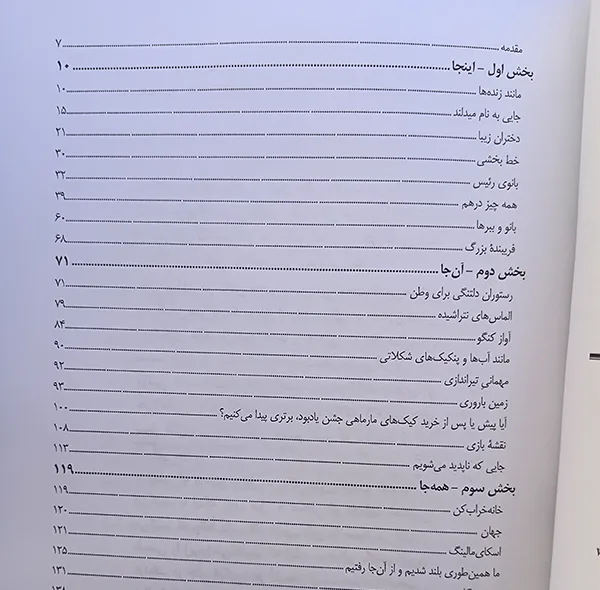 مقدمه ........ ۷
بخش اول – اینجا ........ ۱۰
مانند زنده‌ها ........ ۱۰
جایی به نام میدلند ........ ۱۵
دختران زیبا ........ ۲۱
خط بخشی ........ ۳۰
بانوی رئیس ........ ۳۲
همه چیز درهم ........ ۳۹
بانو و ببرها ........ ۶۰
فریبندهٔ بزرگ ........ ۶۸
بخش دوم – آن‌جا ........ ۷۱
رستوران دلتنگی برای وطن ........ ۷۱
الماس‌های نتراشیده ........ ۷۹
آواز کنگو ........ ۸۴
مانند آب‌ها و پنکیک‌های شکلاتی ........ ۹۰
مهمانی تیراندازی ........ ۹۲
زمین باروری ........ ۹۳
آیا پیش یا پس از خرید کیک‌های مارماهی جشن یادبود، برتری پیدا می‌کنیم؟ ........ ۱۰۰
نقشهٔ بازی ........ ۱۰۸
جایی که ناپدید می‌شویم ........ ۱۱۳
بخش سوم – همه‌جا ........ ۱۱۹
خانه‌خراب‌کن ........ ۱۱۹
جهان ........ ۱۲۰
اسکای‌مالینگ ........ ۱۲۱
ما همین‌طوری بلند شدیم و از آن‌جا رفتیم ........ ۱۲۵
۱۳۱